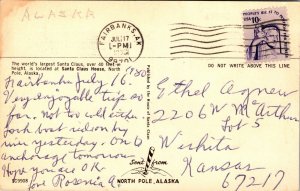 ALASKA
FAIRBANKS, AK
JUL 17
PM
PEOPLE'S RIGHT TO PETITION
USA 10c
The world's largest Santa Claus, over 40 feet in
height, is located at Santa Claus House, North
Pole, Alaska.
DO NOT WRITE ABOVE THIS LINE
Fairbanks July 16, 1980
Very enjoyable trip so
far. Not too wild
took boat ride on by
river yesterday. On to
anchorage tomorrow
Hope you are OK
Love Rosenia
Ethel Agnew
2206 W McArthur
Lot 5
Wichita
Kansas
67217
Sent from
NORTH POLE, ALASKA